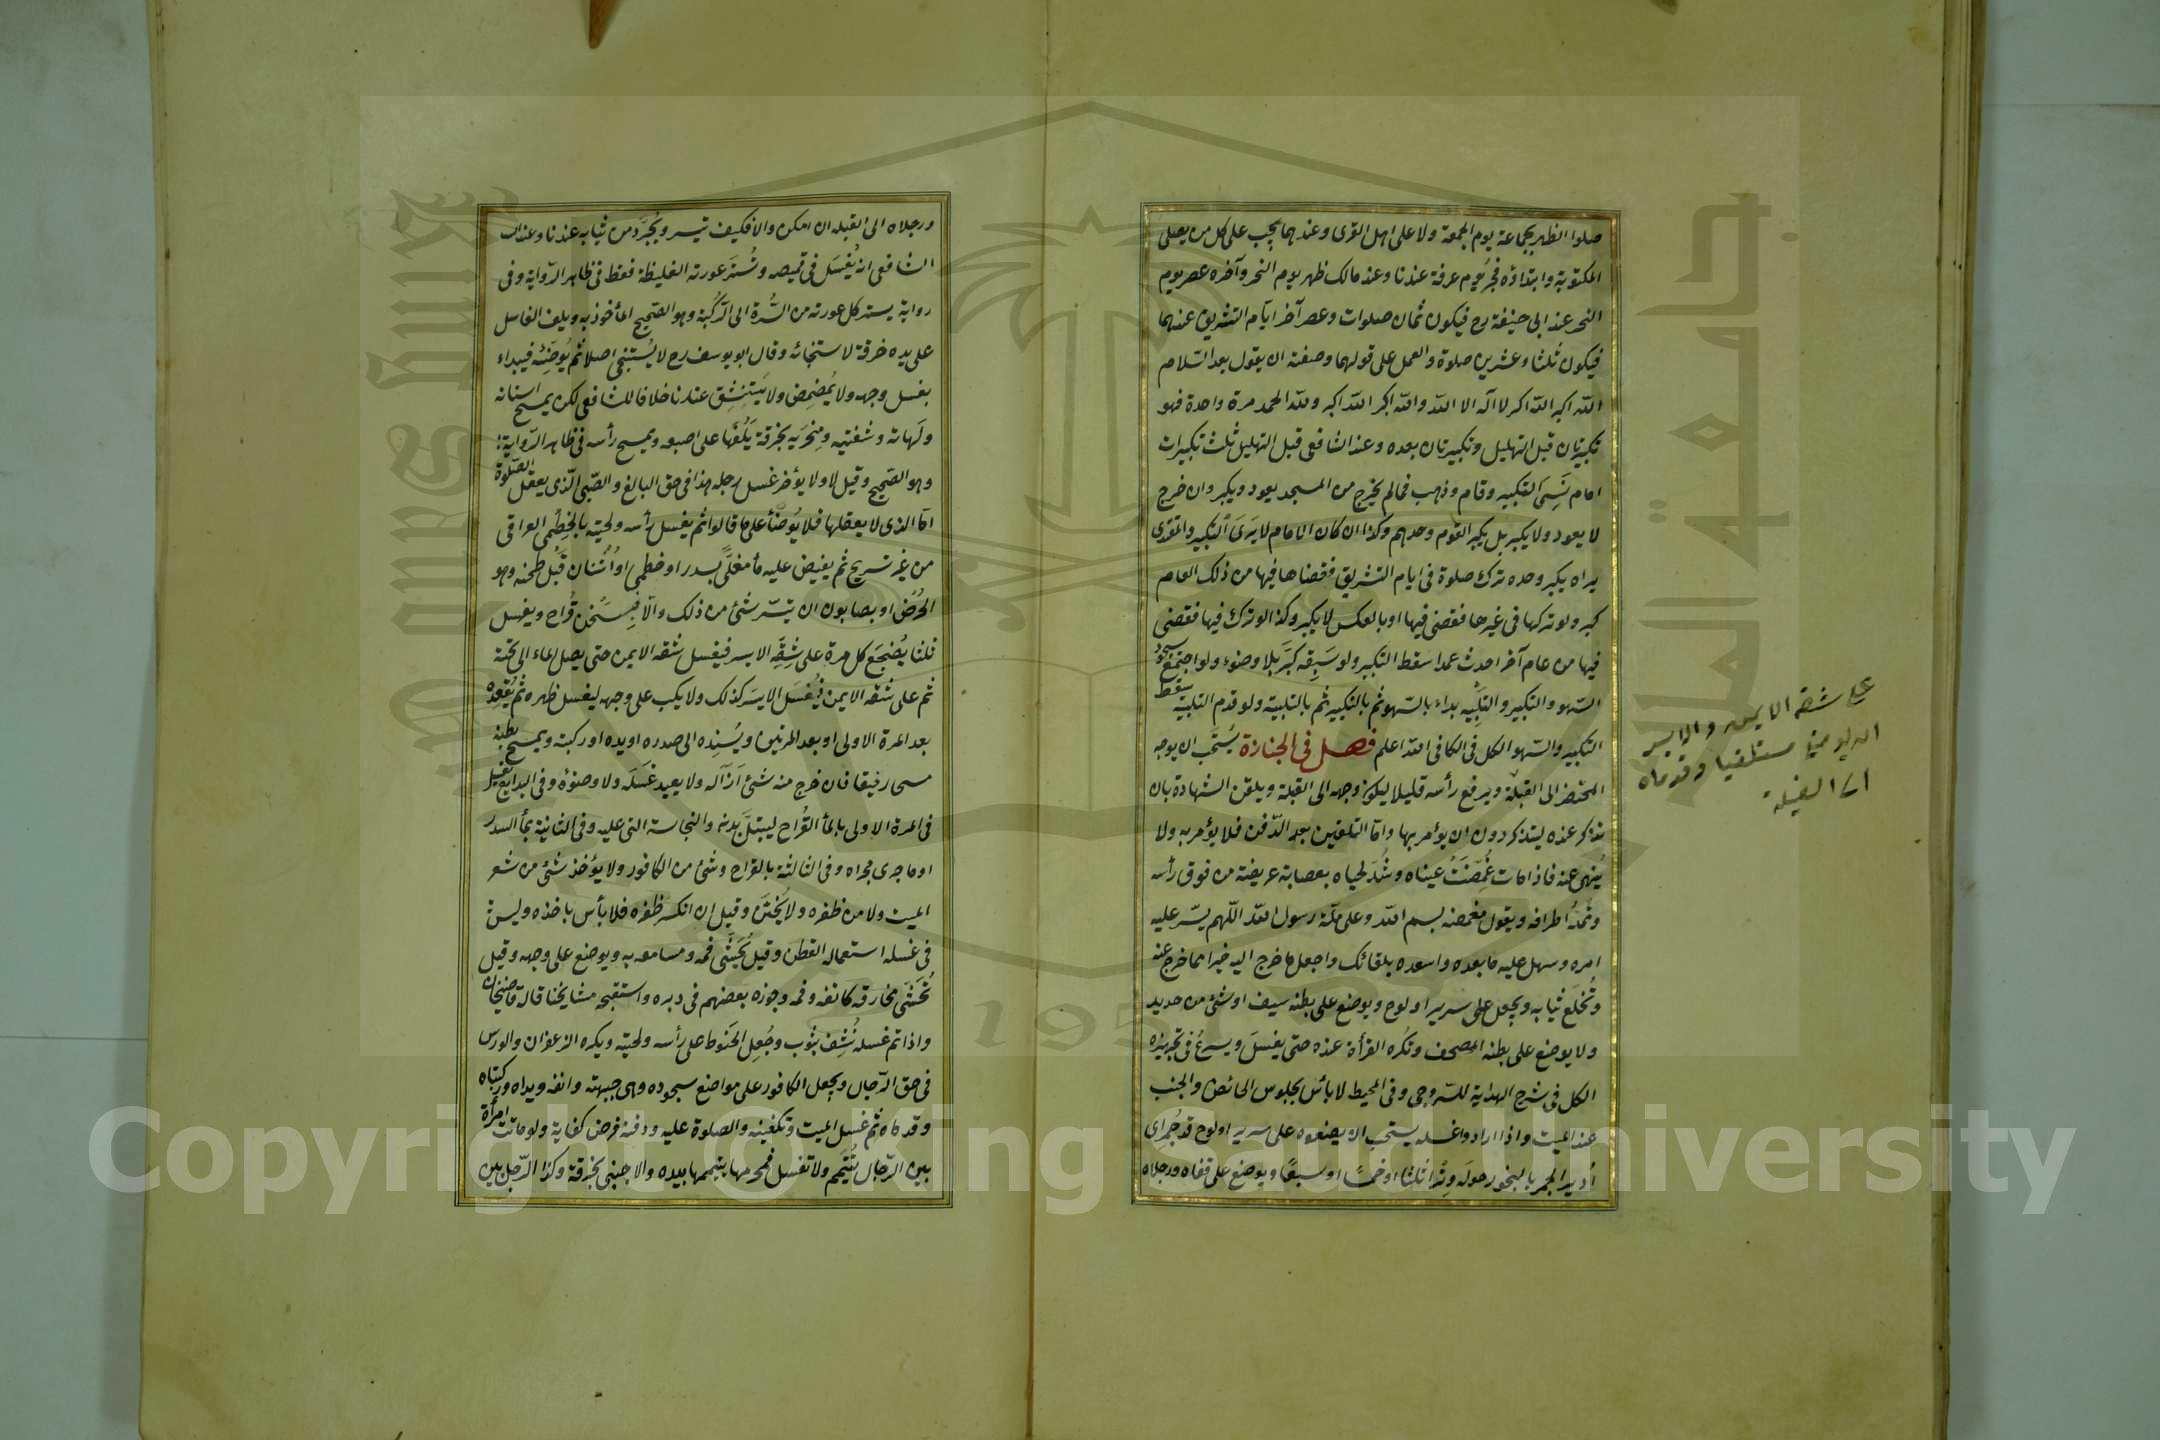 صلوا الظهر بجماعة يوم الجمعة ولا على اهل القرى وعندهما يجب على كل من يصلى
المكتوبة وابتداؤه فجر يوم عرفة عندنا وعند مالك ظهر يوم النحر وآخره عصر يوم
النحر عند ابى حنيفة رح فيكون ثمان صلوات وعصر آخر ايام التشريق عندهما
فيكون ثلثا وعشرين صلوة والعمل على قولهما وصفته ان يقول بعد السلام
الله اكبر الله اكبر لا اله الا الله والله اكبر الله اكبر ولله الحمد مرة واحدة فهو
تكبيرتان قبل التهليل وتكبيرتان بعده وعند الشافعى قبل التهليل ثلث تكبيرات
امام نَسِىَ التكبير وقام وذهب فمالم يخرج من المسجد يعود ويكبر وان خرج
لا يعود ولا يكبر بل يكبر القوم وحدهم وكذا ان كان الامام لا يَرَى التكبير والمقتدى
يراه يكبر وحده ترك صلوة فى ايام التشريق فقضاها فيها من ذلك العام
كبر ولو تركها فى غيرها فقضى فيها او بالعكس لا يكبر وكذا لو ترك فيها فقضى
فيها من عام آخر احدث عمدا سقط التكبير ولو سَبِقه كَبَّر بلا وضوء ولو اجتمع سجود
السهو والتكبير والتلبية بداء بالسهو ثم بالتكبير ثم بالتلبية ولو قدم التلبية يسقط
التكبير والسهو الكل فى الكافى الله اعلم فصل فى الجنازة يُستحَب ان يوجه
المحتضر الى القبلة ويرفع رأسه قليلا ليكون وجهه الى القبلة ويلقن الشهادة بان
تذكر عنده ليتذكر دون ان يؤمر بها وامّا التلقين بعد الدّفن فلا يؤمر به ولا
يُنهى عنه فاذا مات غُمِّضَتْ عيناه وشُدَّ لحياه بعصابة عريضة من فوق رأسه
وتُمَدُّ اطرافه ويقول مغمضه بسم الله وعلى ملّة رسول الله اللّهم يسّر عليه
امره وسهل عليه ما بعده واسعده بلقائك واجعل ما خرج اليه خيرا مما خرج عنه
وتُخلَع ثيابه ويجعل على سرير او لوح ويوضع على بطنه سيف او شئ من حديد
ولا يوضع على بطنه المصحف وتُكره القرأة عنده حتى يغسلَ ويسرعُ فى تجهيزه
الكل فى شرح الهداية للسروجى وفى المحيط لا بأس بجلوس الحائض والجنب
عند الميت واذا ارادوا غسله يستحب ان يضعوه على سرير او لوح قد جُمِّر اى
اُدير المجمر بالبخور حوله وِترًا ثلثا او خمسًا او سبعًا ويوضع على قفاه ورجلاه
على شقه الايمن والايسر
مستلقيا وقدماه
الى القبلة
ورجلاه الى القبله ان امكن والا فكيف تيسر ويُجَرَّد من ثيابه عندنا وعند
الشافعى انه يُغسَل فى قميصه وتُستَر عورته الغليظة فقط فى ظاهر الرّواية وفى
رواية يستر كل عورته من السُّرة الى الرُّكبة وهو الصحيح المأخوذ به ويلف الغاسل
على يده خرقة لاستنجائه وقال ابو يوسف رح لا يُستنجى اصلا ثم يُوضّئه فيبداء
بغسل وجهه ولا يُمضمِض ولا يَستنشِق عندنا خلافا للشافعى لكن يمسح اسنانه
ولَهاته وشفتيه ومنخريه بخرقة يَلُفُّها على اصبعه ويمسح رأسه فى ظاهر الرّواية
وهو الصحيح وقيل لا ولا يؤخر غسل رجله هذا فى حق البالغ والصّبى الّذى يعقل الصّلوة
امّا الذى لا يعقلها فلا يُوضّأ على ما قالوا ثم يغسل رأسه ولحيته بالخِطْمِى العراقى
من غير تسريح ثم يفيض عليه مأ مغلًى بسدر او خطمى او اُشنان قَبل طحنه وهو
الحُرُض او بصابون ان تيسّر شئ من ذلك والّا فبِمُسَخّن قُراح ويغسل
ثلثا يُضجَع كل مرة على شِقِّه الايسر فيغسل شقه الايمن حتى يصل الماء الى تحته
ثم على شقه الايمن فيُغسَل الايسَر كذلك ولا يكب على وجهه ليغسل ظهره ثم يُقعِده
بعد المرة الاولى او بعد المرتين ويُسنِده الى صدره او يده او ركبته ويمسح بطنه
مسحا رفيقا فان خرج منه شئ اَزاله ولا يعيد غَسلَه ولا وضوؤه وفى البدايع يغسل
فى المرة الاولى بالمأ القُراح ليبتلّ بدنه والنجاسة التى عليه وفى الثانية بمأ السدر
او ما جرى مجراه وفى الثالثة بالقراح وشئ من الكافور ولا يؤخذ شئ من شعر
الميت ولا من ظفره ولا يُختَن وقيل ان انكسر ظفره فلا بأس باخذه وليس
فى غسله استعمال القطن وقيل يُحَشّى فمه ومسامعه به ويوضع على وجهه وقيل
تُحَشّى مخارقه كانفه وفمه وجوزه بعضهم فى دبره واستقبحه مشايخنا قاله قاضيخان
واذا تم غسله نُشِف بثوب وجُعِل الحَنوط على رأسه ولحيته ويكره الزعفران والورس
فى حق الرّجال ويجعل الكافور على مواضع سجوده وهى جبهته وانفه ويداه وركبتاه
وقدماه ثم غسل الميت وتكفينه والصلوة عليه ودفنه فرض كفاية ولو ماتت امرأة
بين الرّجال تُيَمَّم ولا تغسل فمحرمها ييممها بيده والاجنبى بخرقة وكذا الرّجل بين
جامعة الملك سعود
1957
Copyright © King Saud University